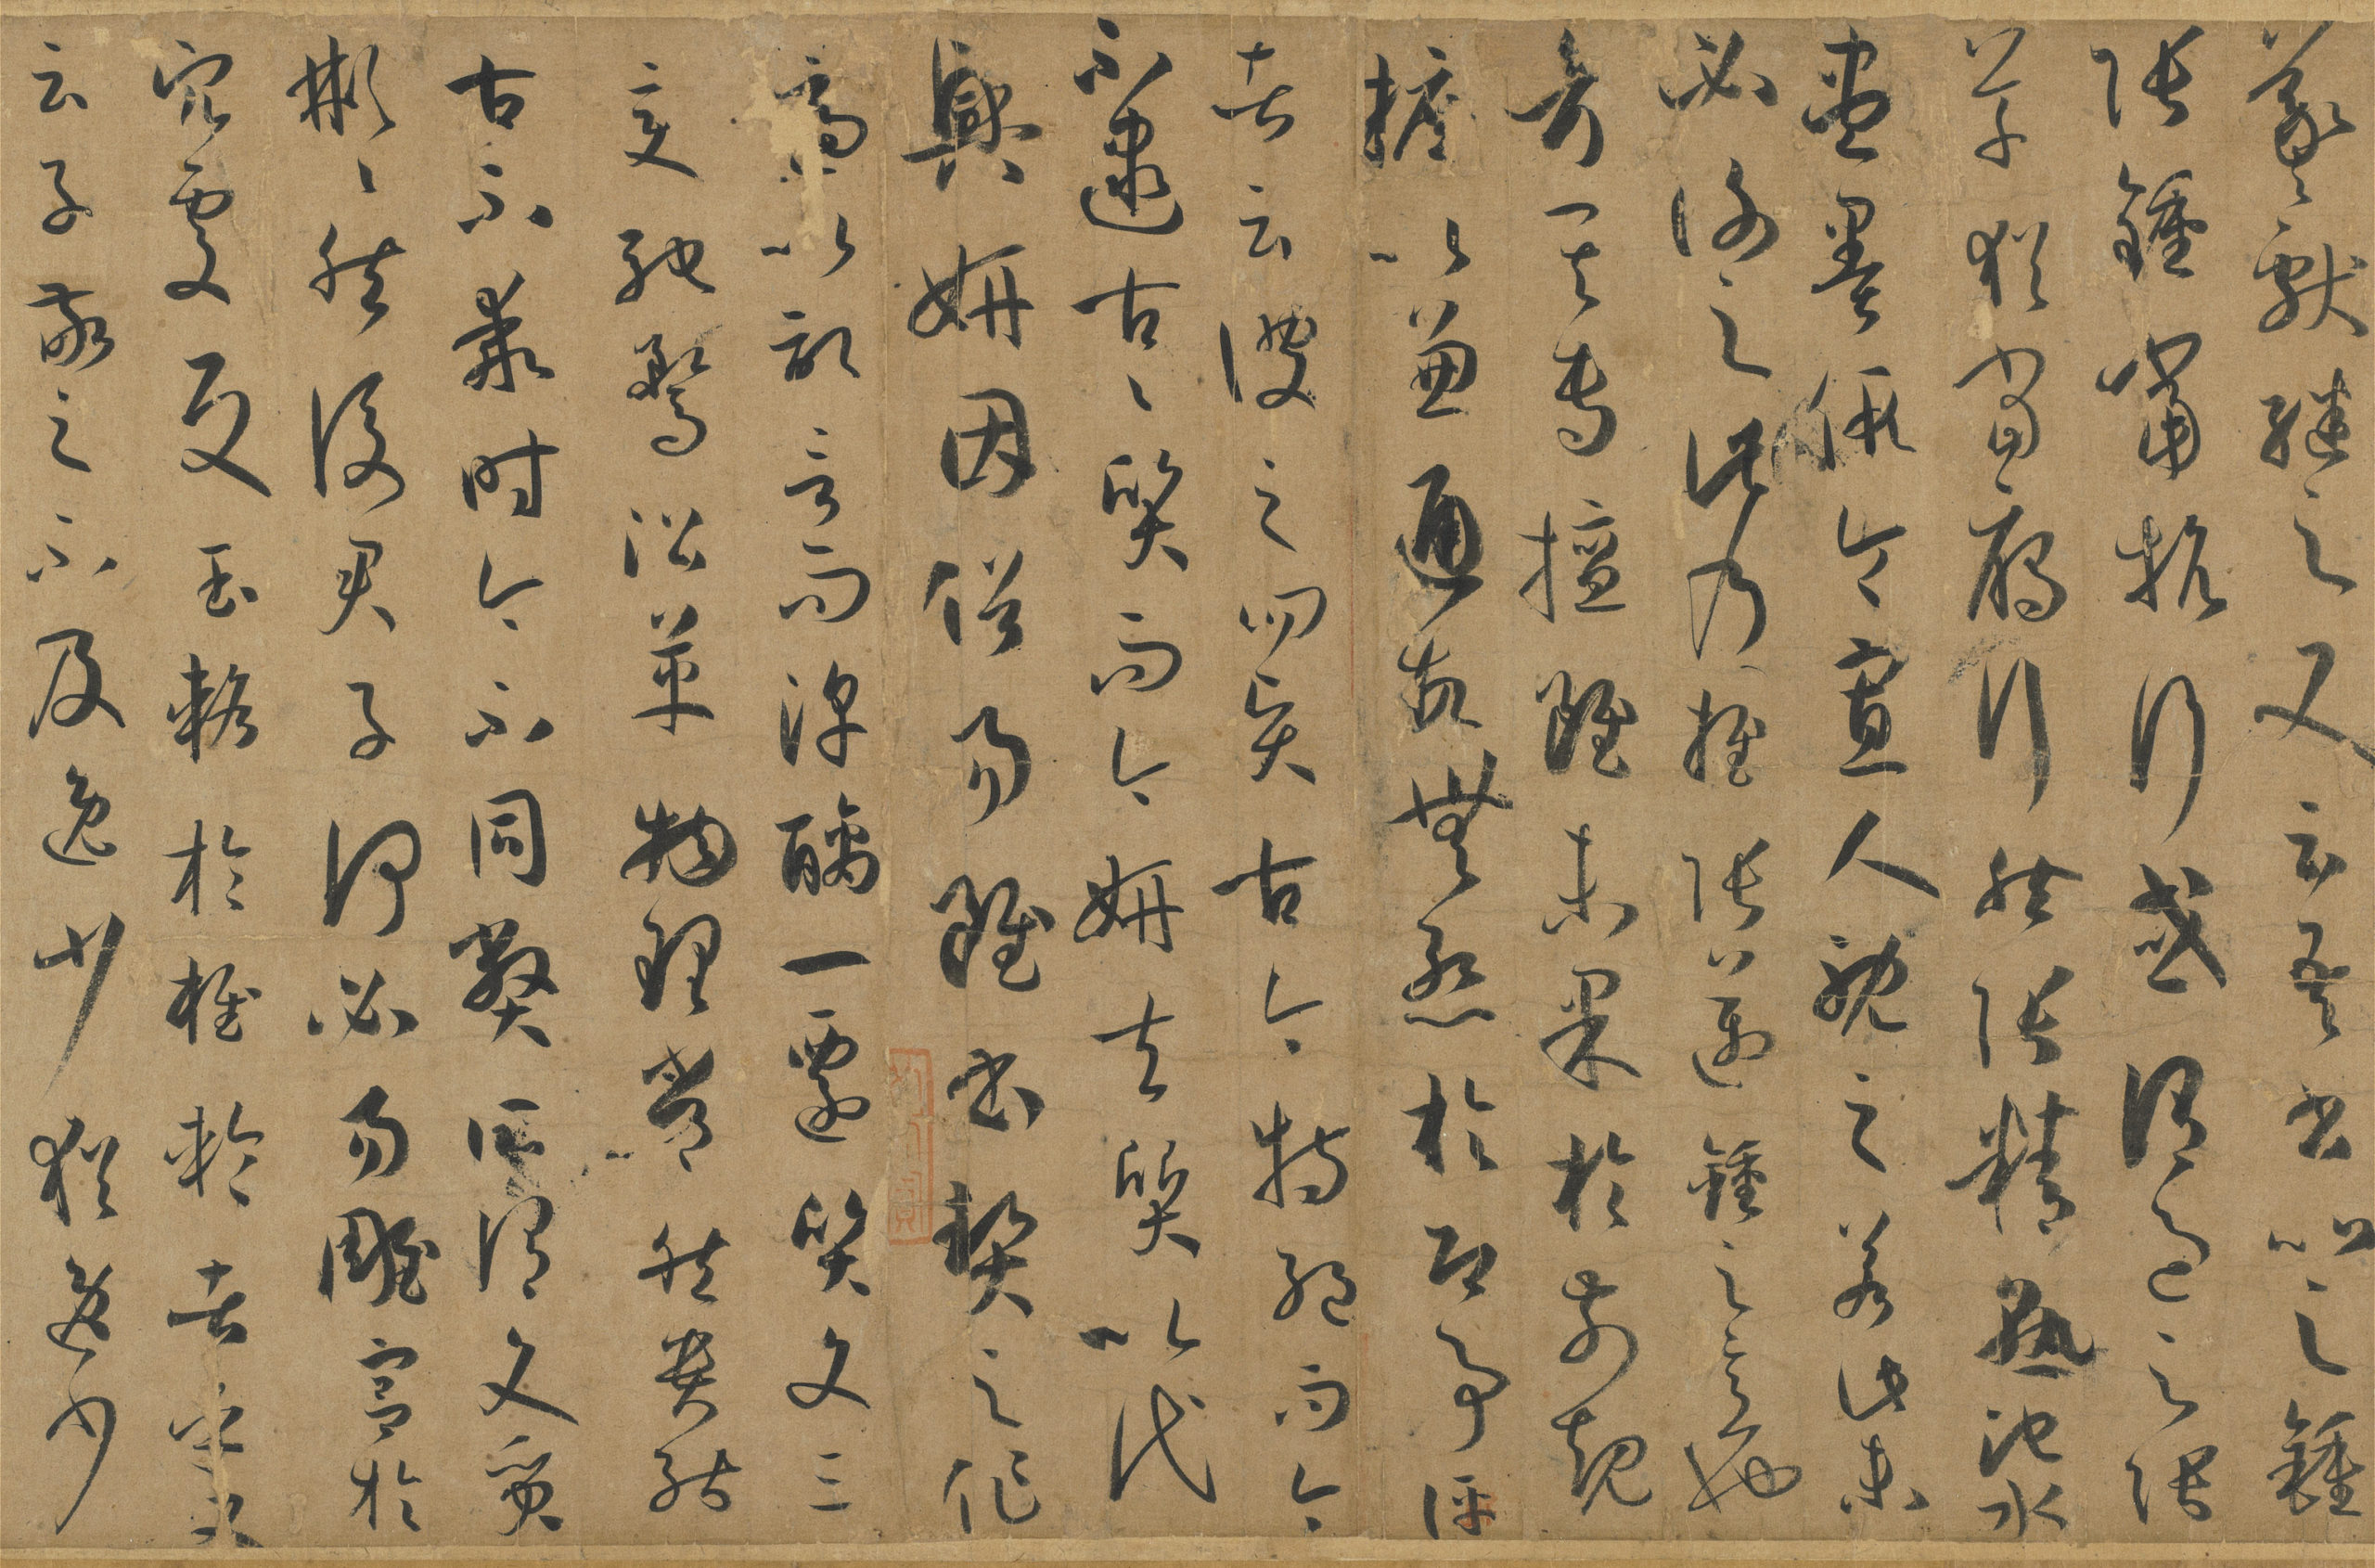 羲獻繼之又云吾書比之鍾
張鍾當抗行或謂過之張
草猶當鴈行然張精熟池水
盡墨假令寡人耽之若此未
必謝之此乃推張邁鍾之意也
考其專擅雖未果於前規
摭以兼通故無慚於即事評
者云彼之四賢古今特絕而今
不逮古〻質而今妍夫質以代
興妍因俗易雖書契之作
適以記言而淳醨一遷質文三
變馳騖沿革物理常然貴能
古不乖時今不同弊所謂文質
彬〻然後君子何必易雕宮於
穴處反玉輅於椎輪者乎又
云子敬之不及逸少猶逸少